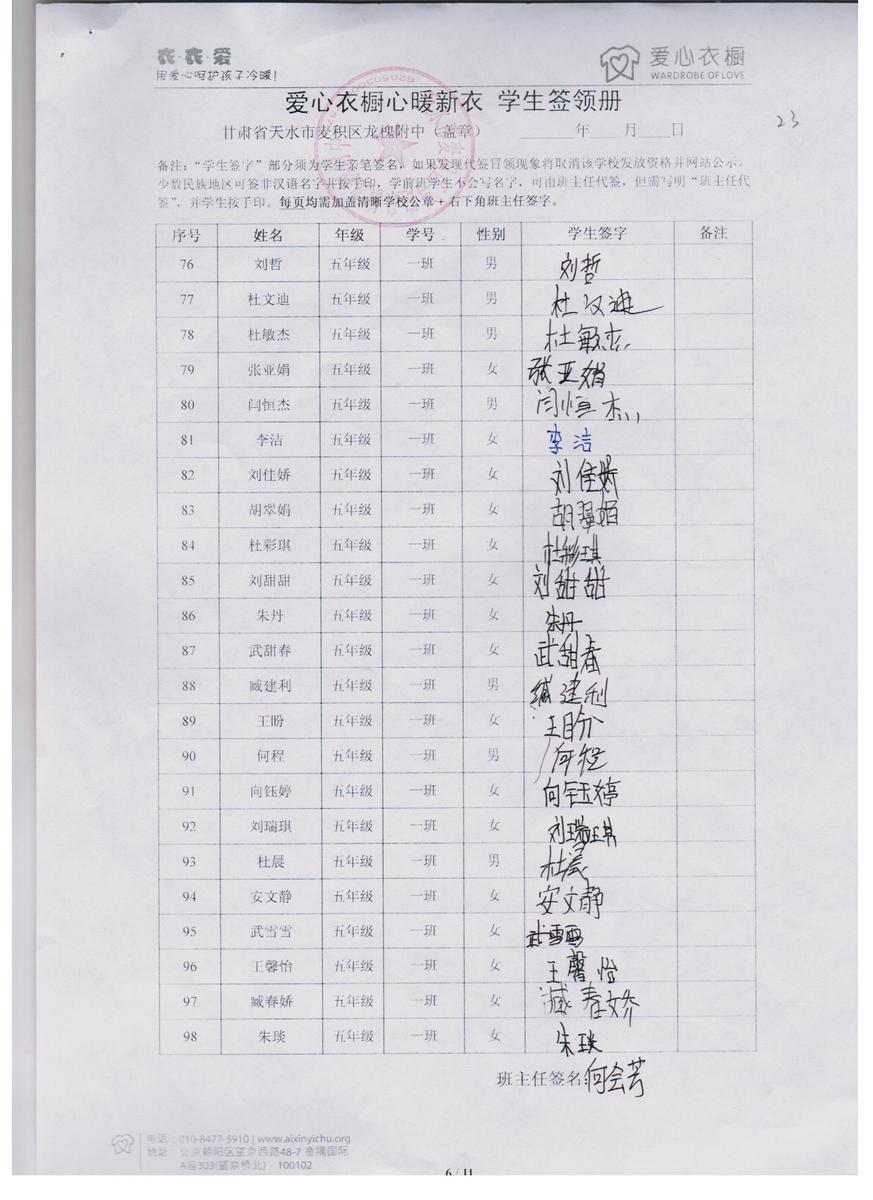 衣·衣·爱
用爱心呵护孩子冷暖!
爱心衣橱
WARDROBE OF LOVE
爱心衣橱心暖新衣 学生签领册
甘肃省天水市麦积区龙槐附中（盖章） 年 月 日
23
备注：“学生签字”部分须为学生亲笔签名，如果发现代签冒领现象将取消该学校发放资格并网站公示。
少数民族地区可签非汉语名字并按手印，学前班学生不会写名字，可由班主任代签，但需写明“班主任代
签”，并学生按手印。每页均需加盖清晰学校公章+右下角班主任签字。
序号 姓名 年级 学号 性别 学生签字 备注
76 刘哲 五年级 一班 男 刘哲
77 杜文迪 五年级 一班 男 杜文迪
78 杜敏杰 五年级 一班 男 杜敏杰
79 张亚娟 五年级 一班 女 张亚娟
80 闫恒杰 五年级 一班 男 闫恒杰
81 李洁 五年级 一班 女 李洁
82 刘佳娇 五年级 一班 女 刘佳娇
83 胡翠娟 五年级 一班 女 胡翠娟
84 杜彩琪 五年级 一班 女 杜彩琪
85 刘甜甜 五年级 一班 女 刘甜甜
86 朱丹 五年级 一班 女 朱丹
87 武甜春 五年级 一班 女 武甜春
88 臧建利 五年级 一班 男 臧建利
89 王盼 五年级 一班 女 王盼
90 何程 五年级 一班 男 何程
91 向钰婷 五年级 一班 女 向钰婷
92 刘瑞琪 五年级 一班 女 刘瑞琪
93 杜晨 五年级 一班 男 杜晨
94 安文静 五年级 一班 女 安文静
95 武雪雪 五年级 一班 女 武雪雪
96 王馨怡 五年级 一班 女 王馨怡
97 臧春娇 五年级 一班 女 臧春娇
98 朱琰 五年级 一班 女 朱琰
班主任签名:何会芳
电话：010-8477-5910 | www.aixinyichu.org
地址：北京朝阳区望京西路48-7 金隅国际
A座303(望京桥北)·100102
6 / 11